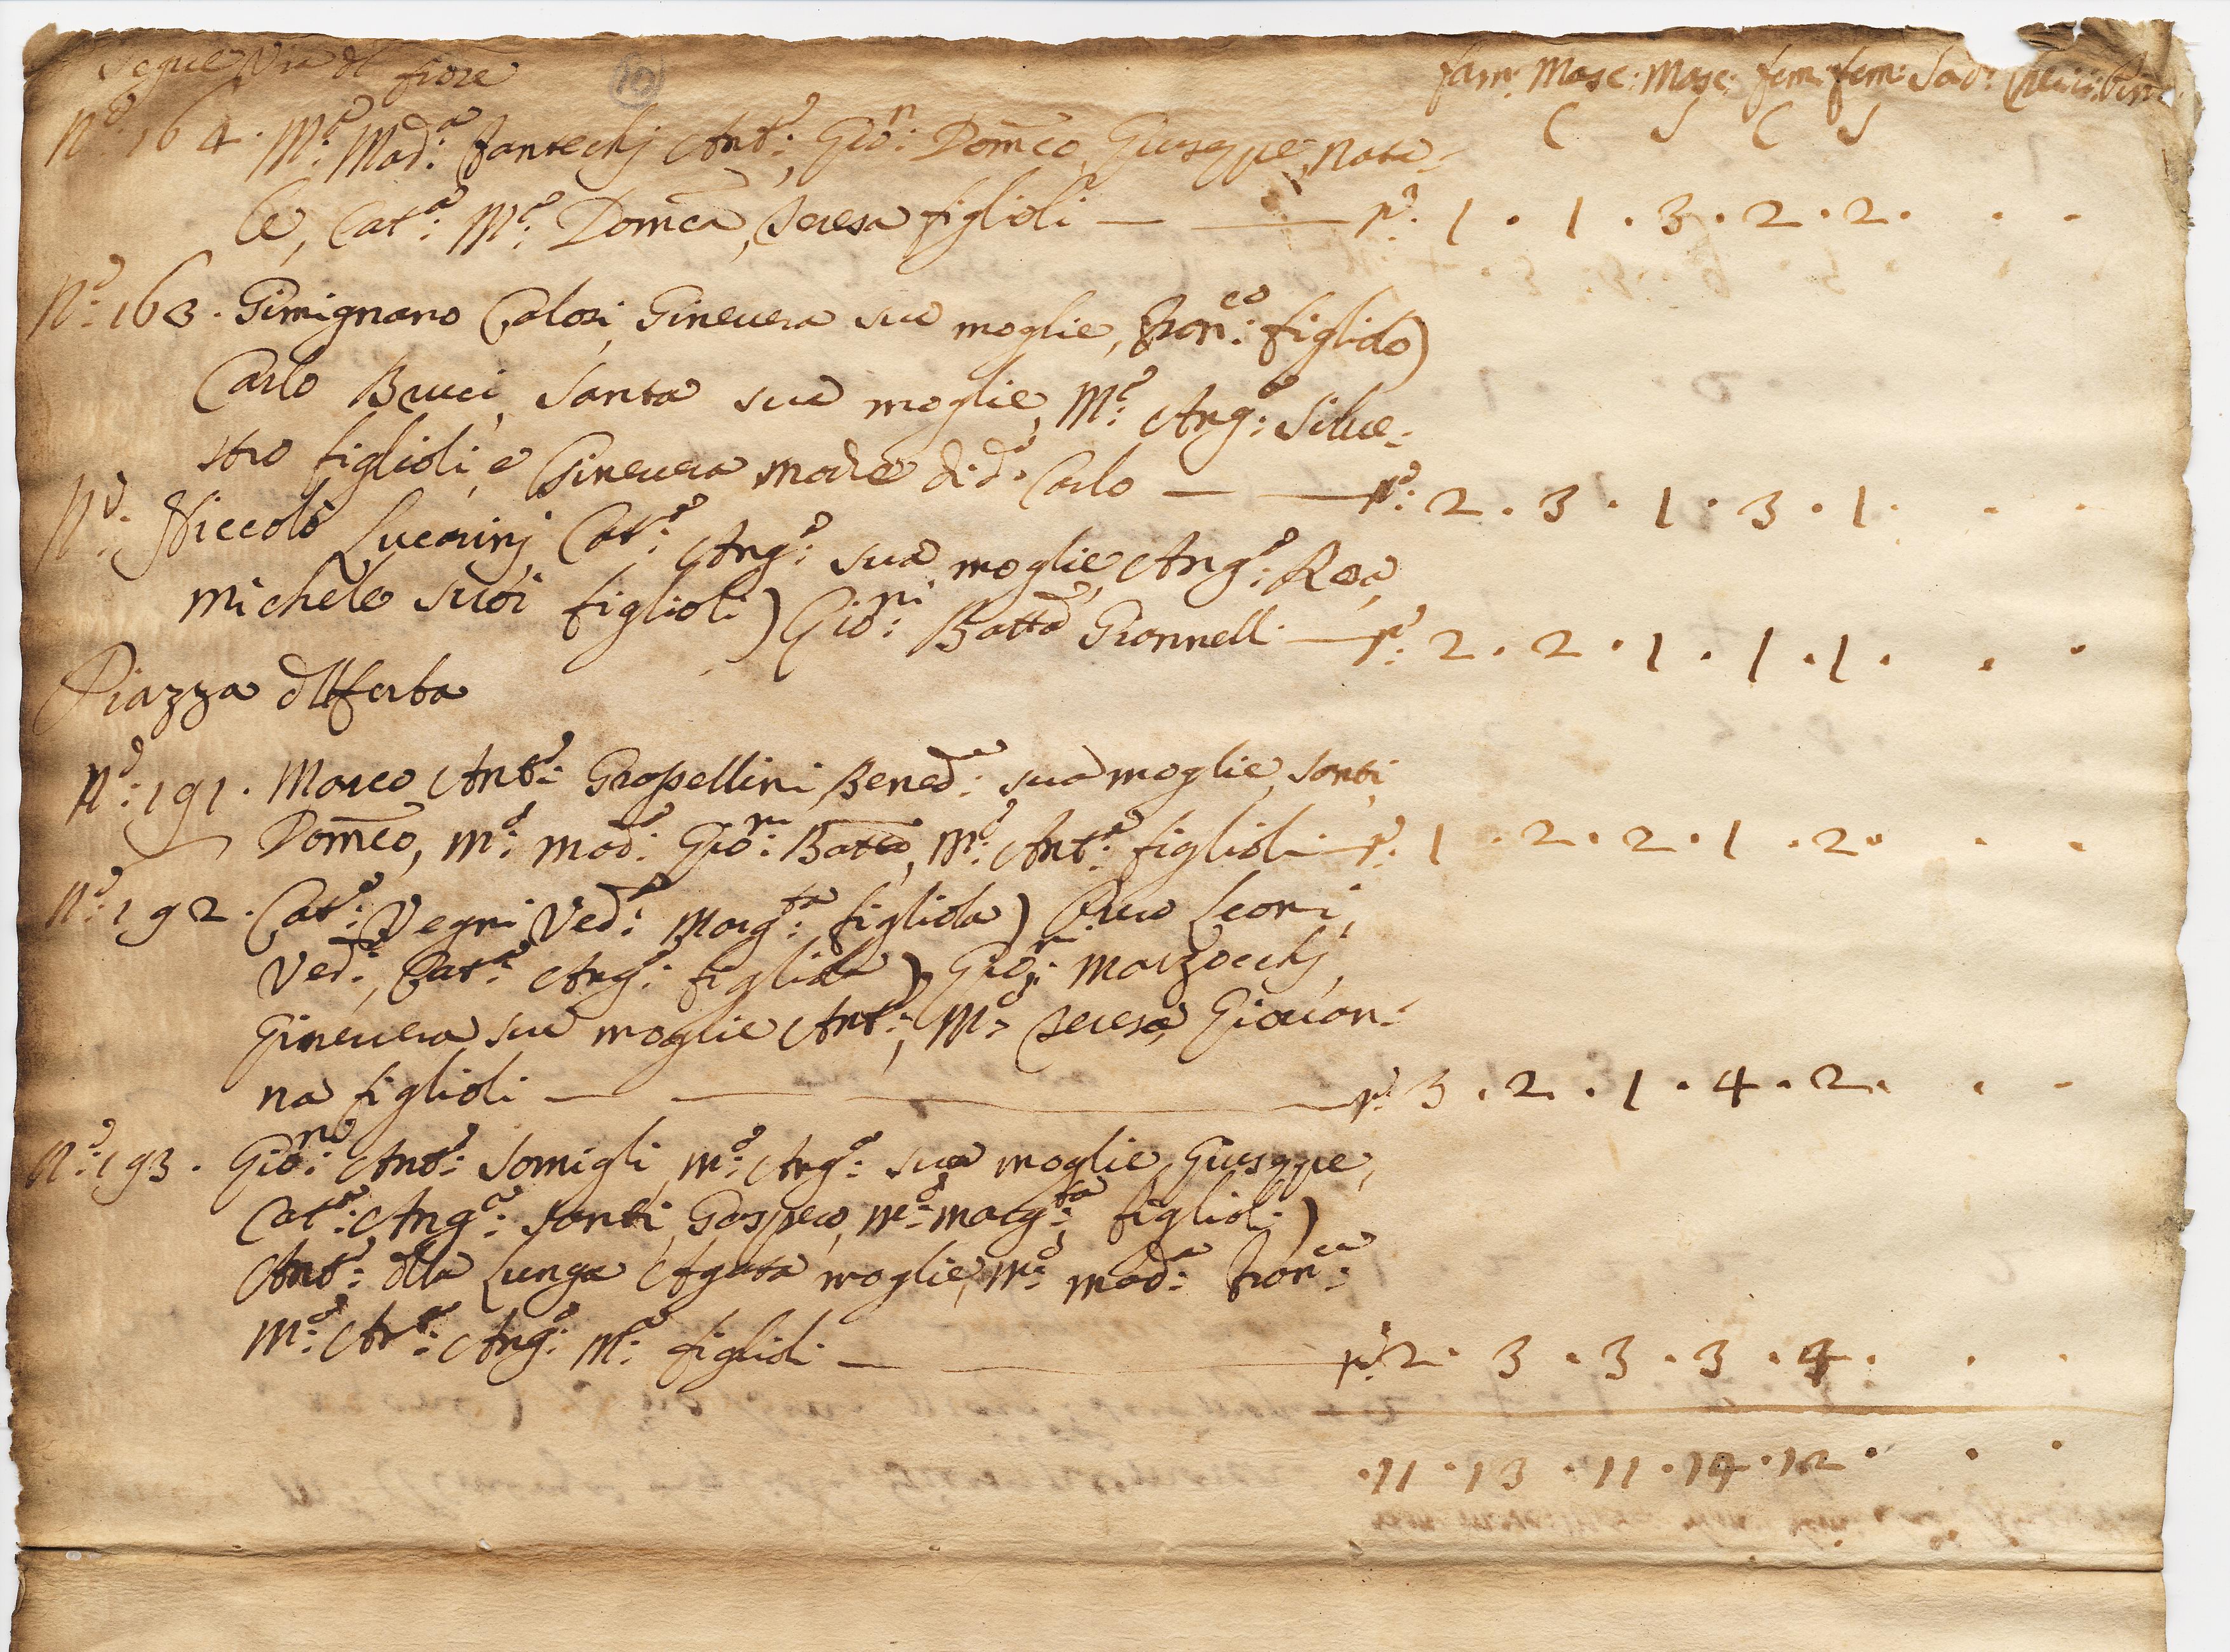 Segue Via del fiore
fam: Masc: Masc: fem: fem: Sad:
C S C S
N.º 164. M.ª Mad.ª Fantechj Ant.º, Gio:n Dom̃co, Giuseppe, Nata-
le, Cat.ª M.ª Dom̃ca, Teresa figlioli — — n.º 1 . 1 . 3 . 2 . 2 . . .
N.º 163. Gimignano Calosi, Gineuera sua moglie, Fran:co figliolo)
Carlo Bucci, Santa sua moglie, M.ª Ang.ª Silue-
stro figlioli, e Gineuera madre di d.º Carlo — — n.º 2 . 3 . 1 . 3 . 1 . . .
N.º Niccolò Lucarinj Cat.ª Ang.ª sua moglie, Ang.ª Rosa,
Michele suoi figlioli) Gio:ni Batta Giannell. — n.º 2 . 2 . 1 . 1 . 1 . . .
Piazza dll'erba
N.º 191. Marco Ant.º Grassellini Bened.ª sua moglie, Santi,
Dom̃co, M.ª Mad.ª Gio:ni Batta, M.ª Ant.ª figlioli — n.º 1 . 2 . 2 . 1 . 2 . . .
N.º 192. Cat.ª Vegni Ved.ª Marg:ta figliola) Leoni,
Ved.ª, Cat.ª Ang.ª figliola) Gio:ni Marzocchj,
Gineuera sua moglie Ant.º, M.ª Teresa, Giouan-
na figlioli — — — n.º 3 . 2 . 1 . 4 . 2 . . .
N.º 193. Gio:ni Ant.º Somigli, M.ª Ang.ª sua moglie, Giuseppe,
Cat.ª Ang.ª Santi, Gaspero, M.ª Marg:ta figlioli)
Ant.º dlla Lunga Agata moglie, M.ª Mad.ª Fran:ca
M.ª An.ª Ang.º M.ª figlioli — — n.º 2 . 3 . 3 . 3 . 4 . . .
. 11 . 13 . 11 . 14 . 12 . . .